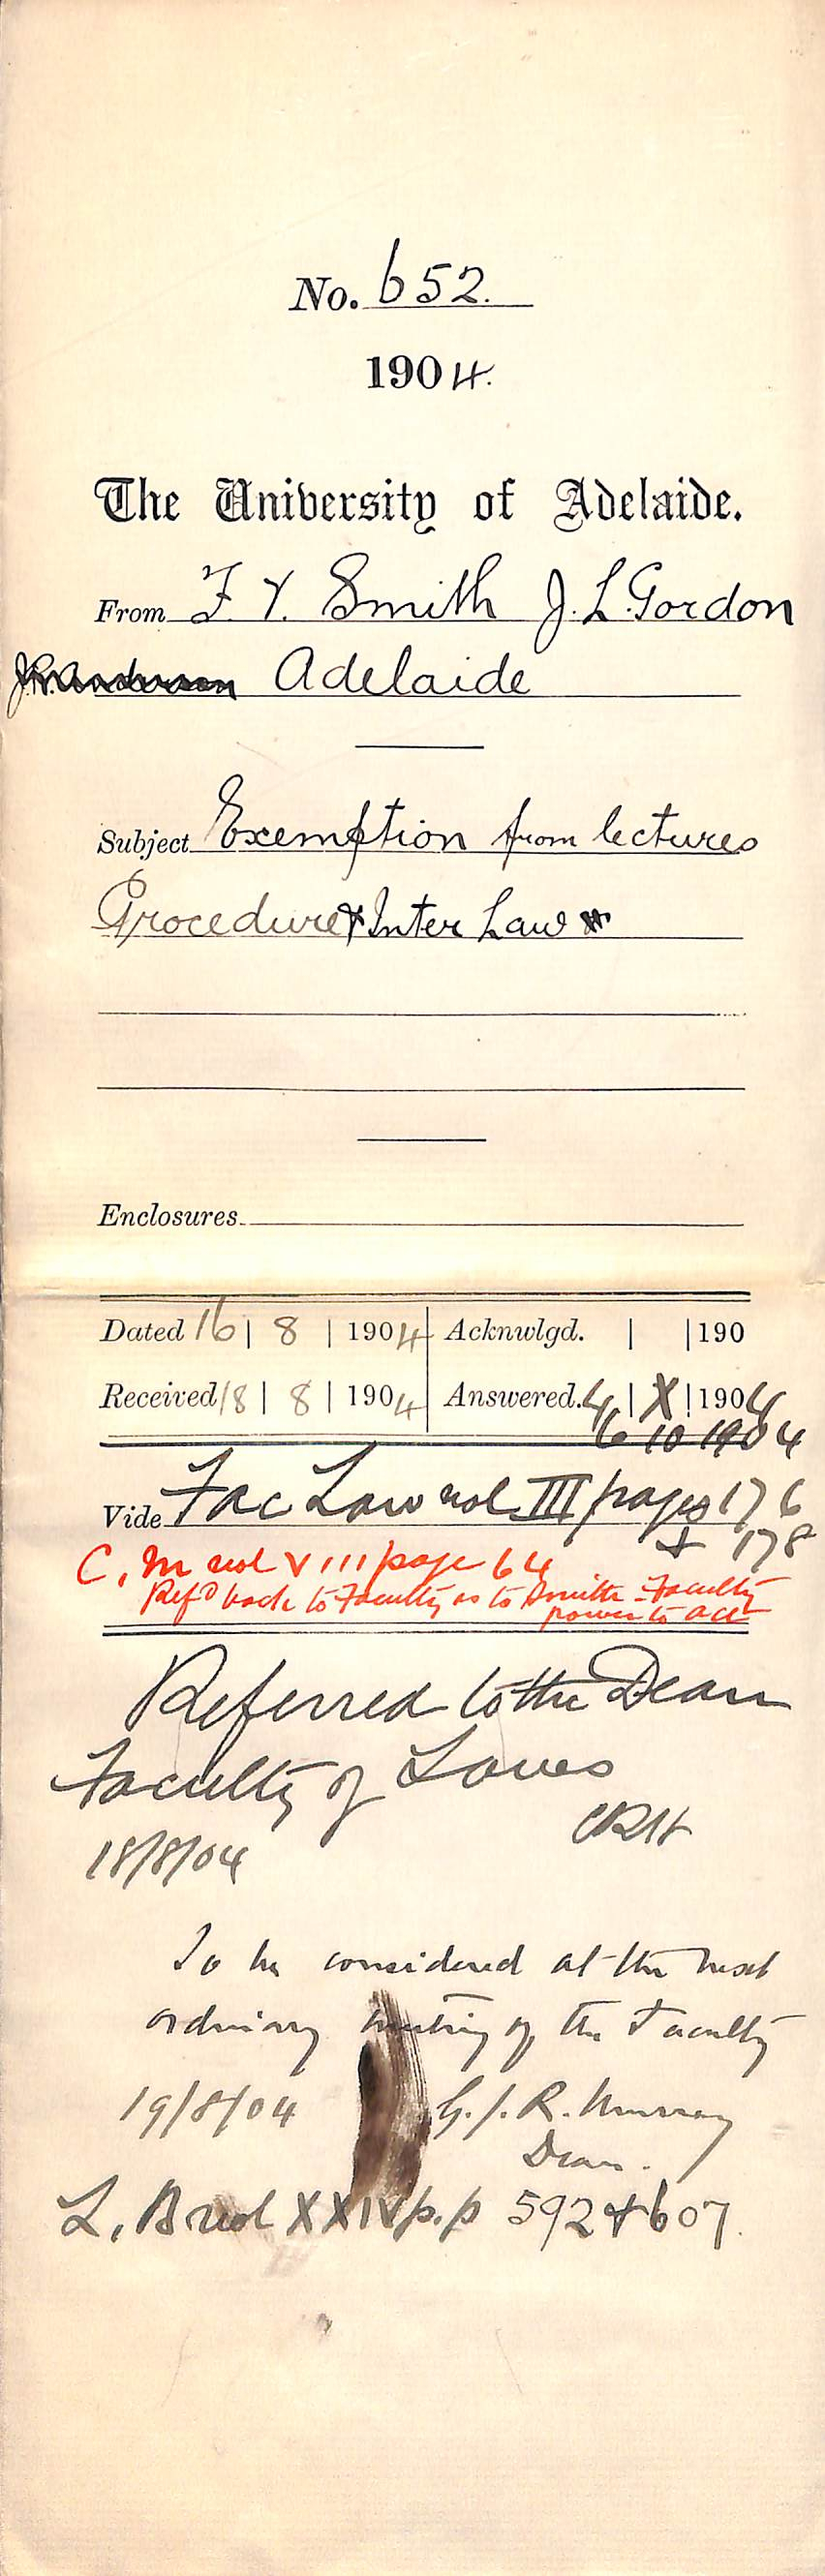 No. 652.
1904.
The University of Adelaide.
From F. V. Smith J. L. Gordon
J.R. Anderson Adelaide
Subject Exemption from lectures
Procedure & Inter Law
Enclosures
Dated 16 | 8 | 1904 Acknwlgd. | | 190
Received 18 | 8 | 1904 Answered. 4 | X | 1904
6 10 1904
Vide Fac Law vol III pages 176
+ 178
C. M vol VIII page 64
Refd back to Faculty as to Smith - Faculty
power to act
Referred to the Dean
Faculty of Laws
CRH
18/8/04
To be considered at the next
ordinary meeting of the Faculty
19/8/04 G. J. R. Murray
Dean.
L. B vol XXIV p.p 592 & 607.